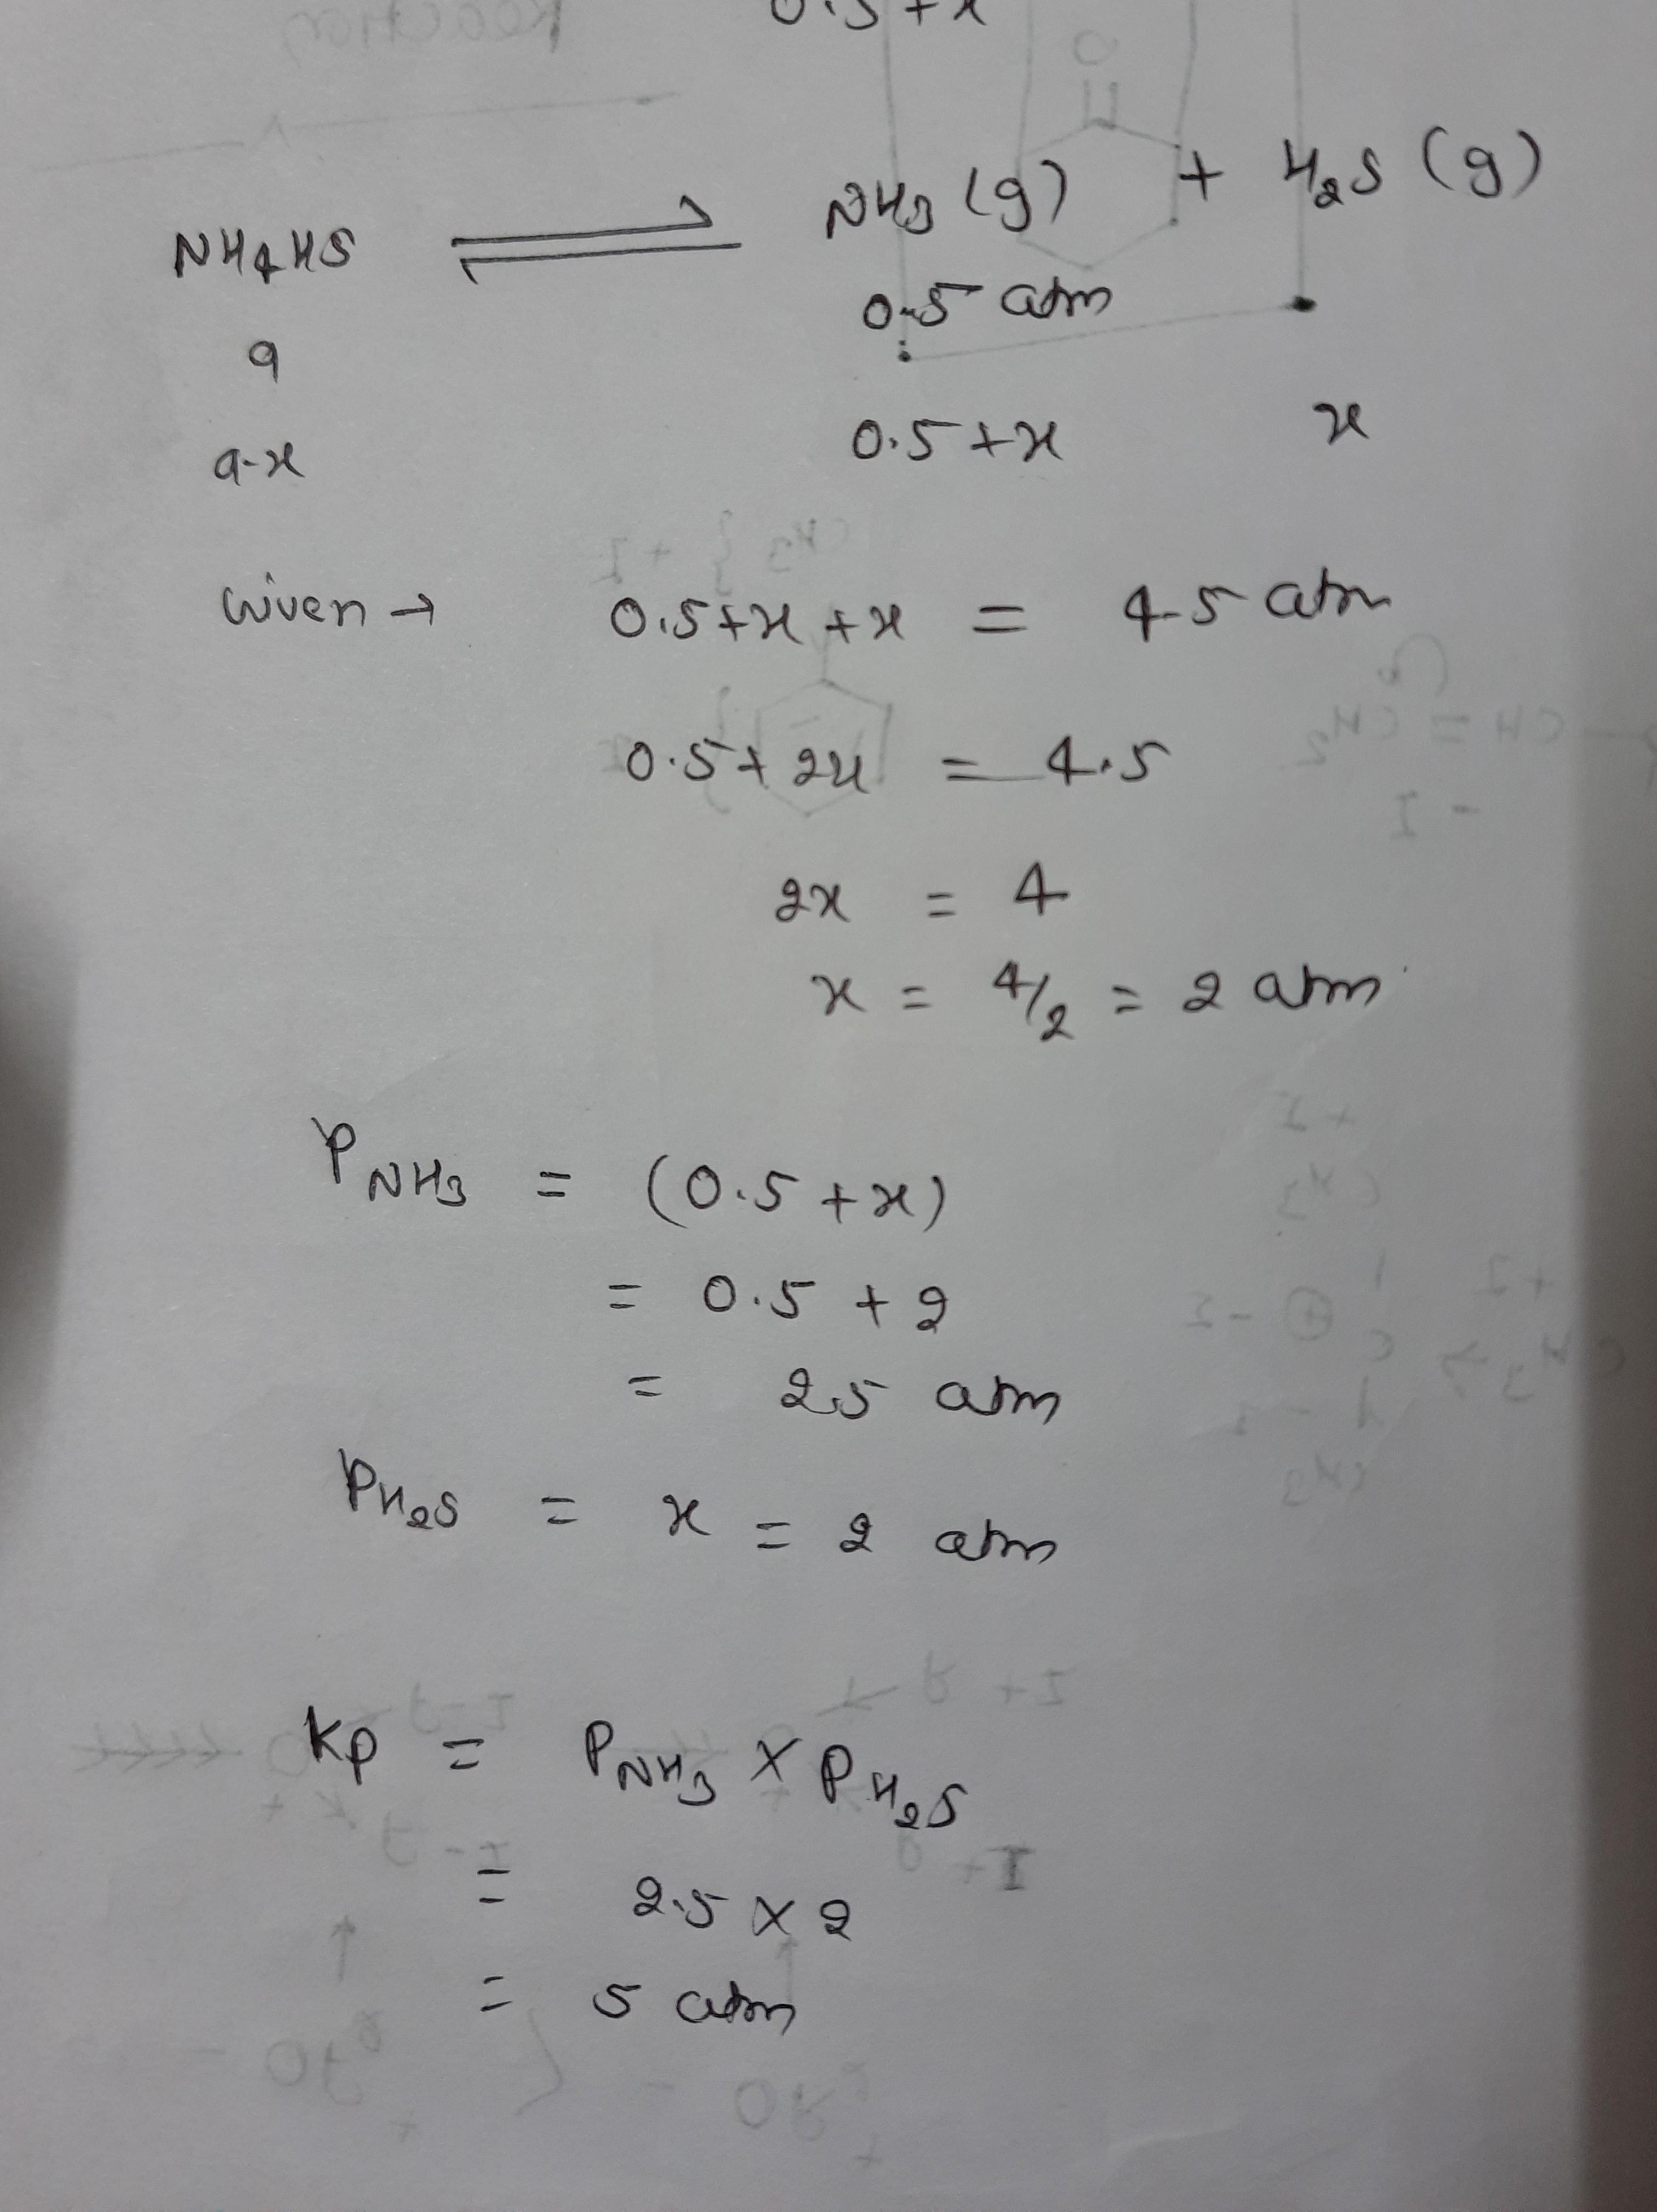 0.5+x
NH4HS ⇌ NH3 (g) + H2S (g)
a 0.5 atm
a-x 0.5+x x
Given → 0.5+x+x = 4.5 atm
0.5+2x = 4.5
2x = 4
x = 4/2 = 2 atm
PNH3 = (0.5+x)
= 0.5 + 2
= 2.5 atm
PH2S = x = 2 atm
Kp = PNH3 × PH2S
= 2.5 × 2
= 5 atm